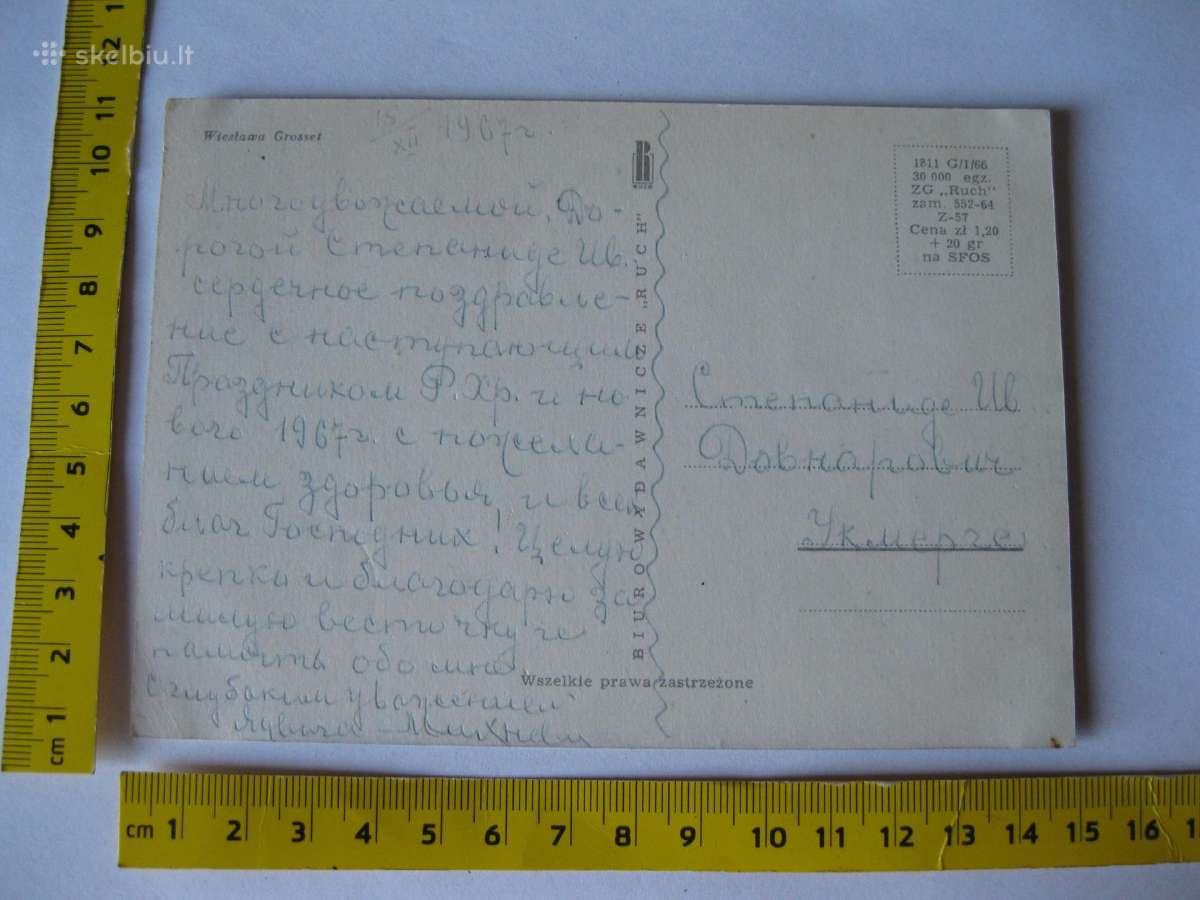 skelbiu.lt
Wiesława Grosset
15/XII 1967г.
Многоуважаемой, До-
рогой Степаниде Ив.
сердечное поздравле-
ние с наступающим
Праздником Р.Хр. и но
вого 1967г. с пожела-
нием здоровья, и всех
благ Господних! Целую
крепко и благодарю за
милую весточку и
память обо мне
С глубоким уважением
BIUROWYDAWNICZE „RUCH"
RUCH
Wszelkie prawa zastrzeżone
1811 G/I/66
30 000 egz.
ZG „Ruch"
zam. 552-64
Z-57
Cena zł 1,20
+ 20 gr
na SFOS
Степаниде Ив
Довнарович
Укмерге
12
11
10
9
8
7
6
5
4
3
2
1
cm
cm 1 2 3 4 5 6 7 8 9 10 11 12 13 14 15 16